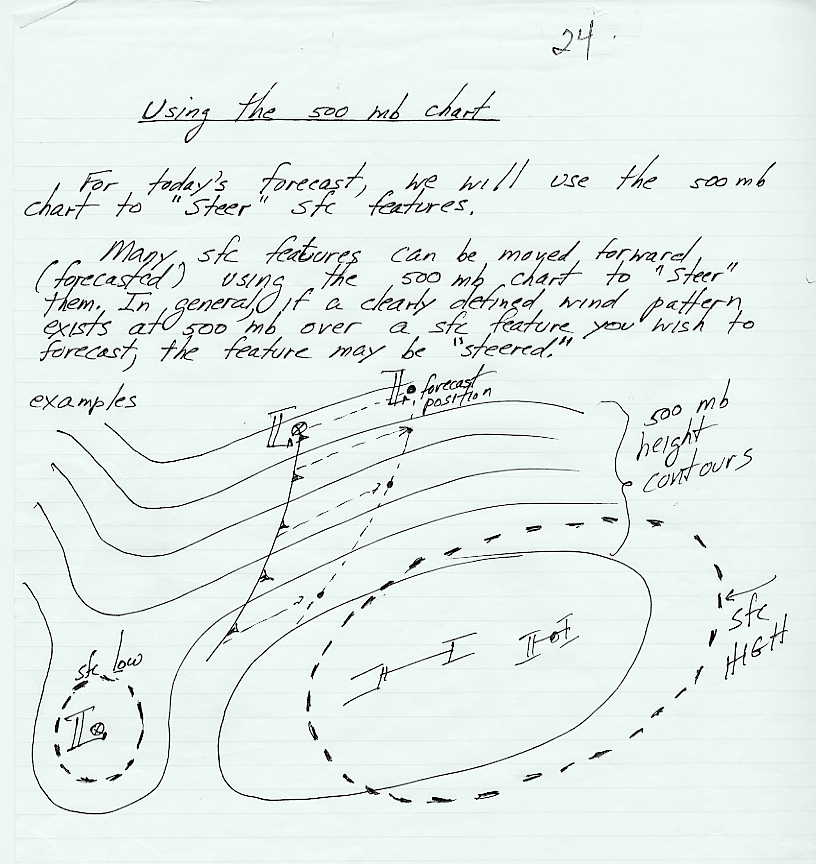 24.
Using the 500 mb chart
For today's forecast, we will use the 500 mb
chart to "steer" sfc features.
Many sfc features can be moved forward
(forecasted) using the 500 mb chart to "steer"
them. In general, if a clearly defined wind pattern
exists at 500 mb over a sfc feature you wish to
forecast, the feature may be "steered."
examples
forecast
position
500 mb
height
contours
sfc
HIGH
sfc low